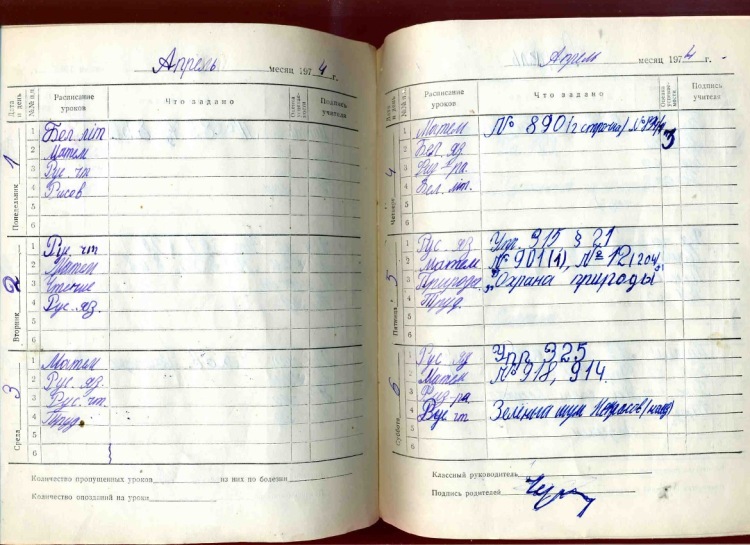 Апрель месяц 1974 г.
Дата и день
№№ п.п.
Расписание уроков
Что задано
Оценка успеваемости
Подпись учителя
Понедельник 1
1 Бел. літ.
2 Матем
3 Рус. чт.
4 Рисов
5
6
Вторник 2
1 Рус. чт
2 Матем
3 Чтение
4 Рус. яз.
5
6
Среда 3
1 Матем
2 Рус. яз.
3 Рус. чт.
4 Труд.
5
6
Количество пропущенных уроков из них по болезни
Количество опозданий на уроки
Апрель месяц 1974 г.
Дата и день
№№ п.п.
Расписание уроков
Что задано
Оценка успеваемости
Подпись учителя
Четверг 4
1 Матем № 890 (2 строчка) 3
2 Бел. яз.
3 Физ-ра.
4 Бел. літ.
5
6
Пятница 5
1 Рус. яз Упр. 315 § 21
2 Матем. № 901 (1), № 12
3 Природа. „Охрана природы"
4 Труд.
5
6
Суббота 6
1 Рус. яз Упр 325
2 Матем № 918, 914.
3 Физ ра.
4 Рус. чт Зелёный шум Некрасов
5
6
Классный руководитель
Подпись родителей